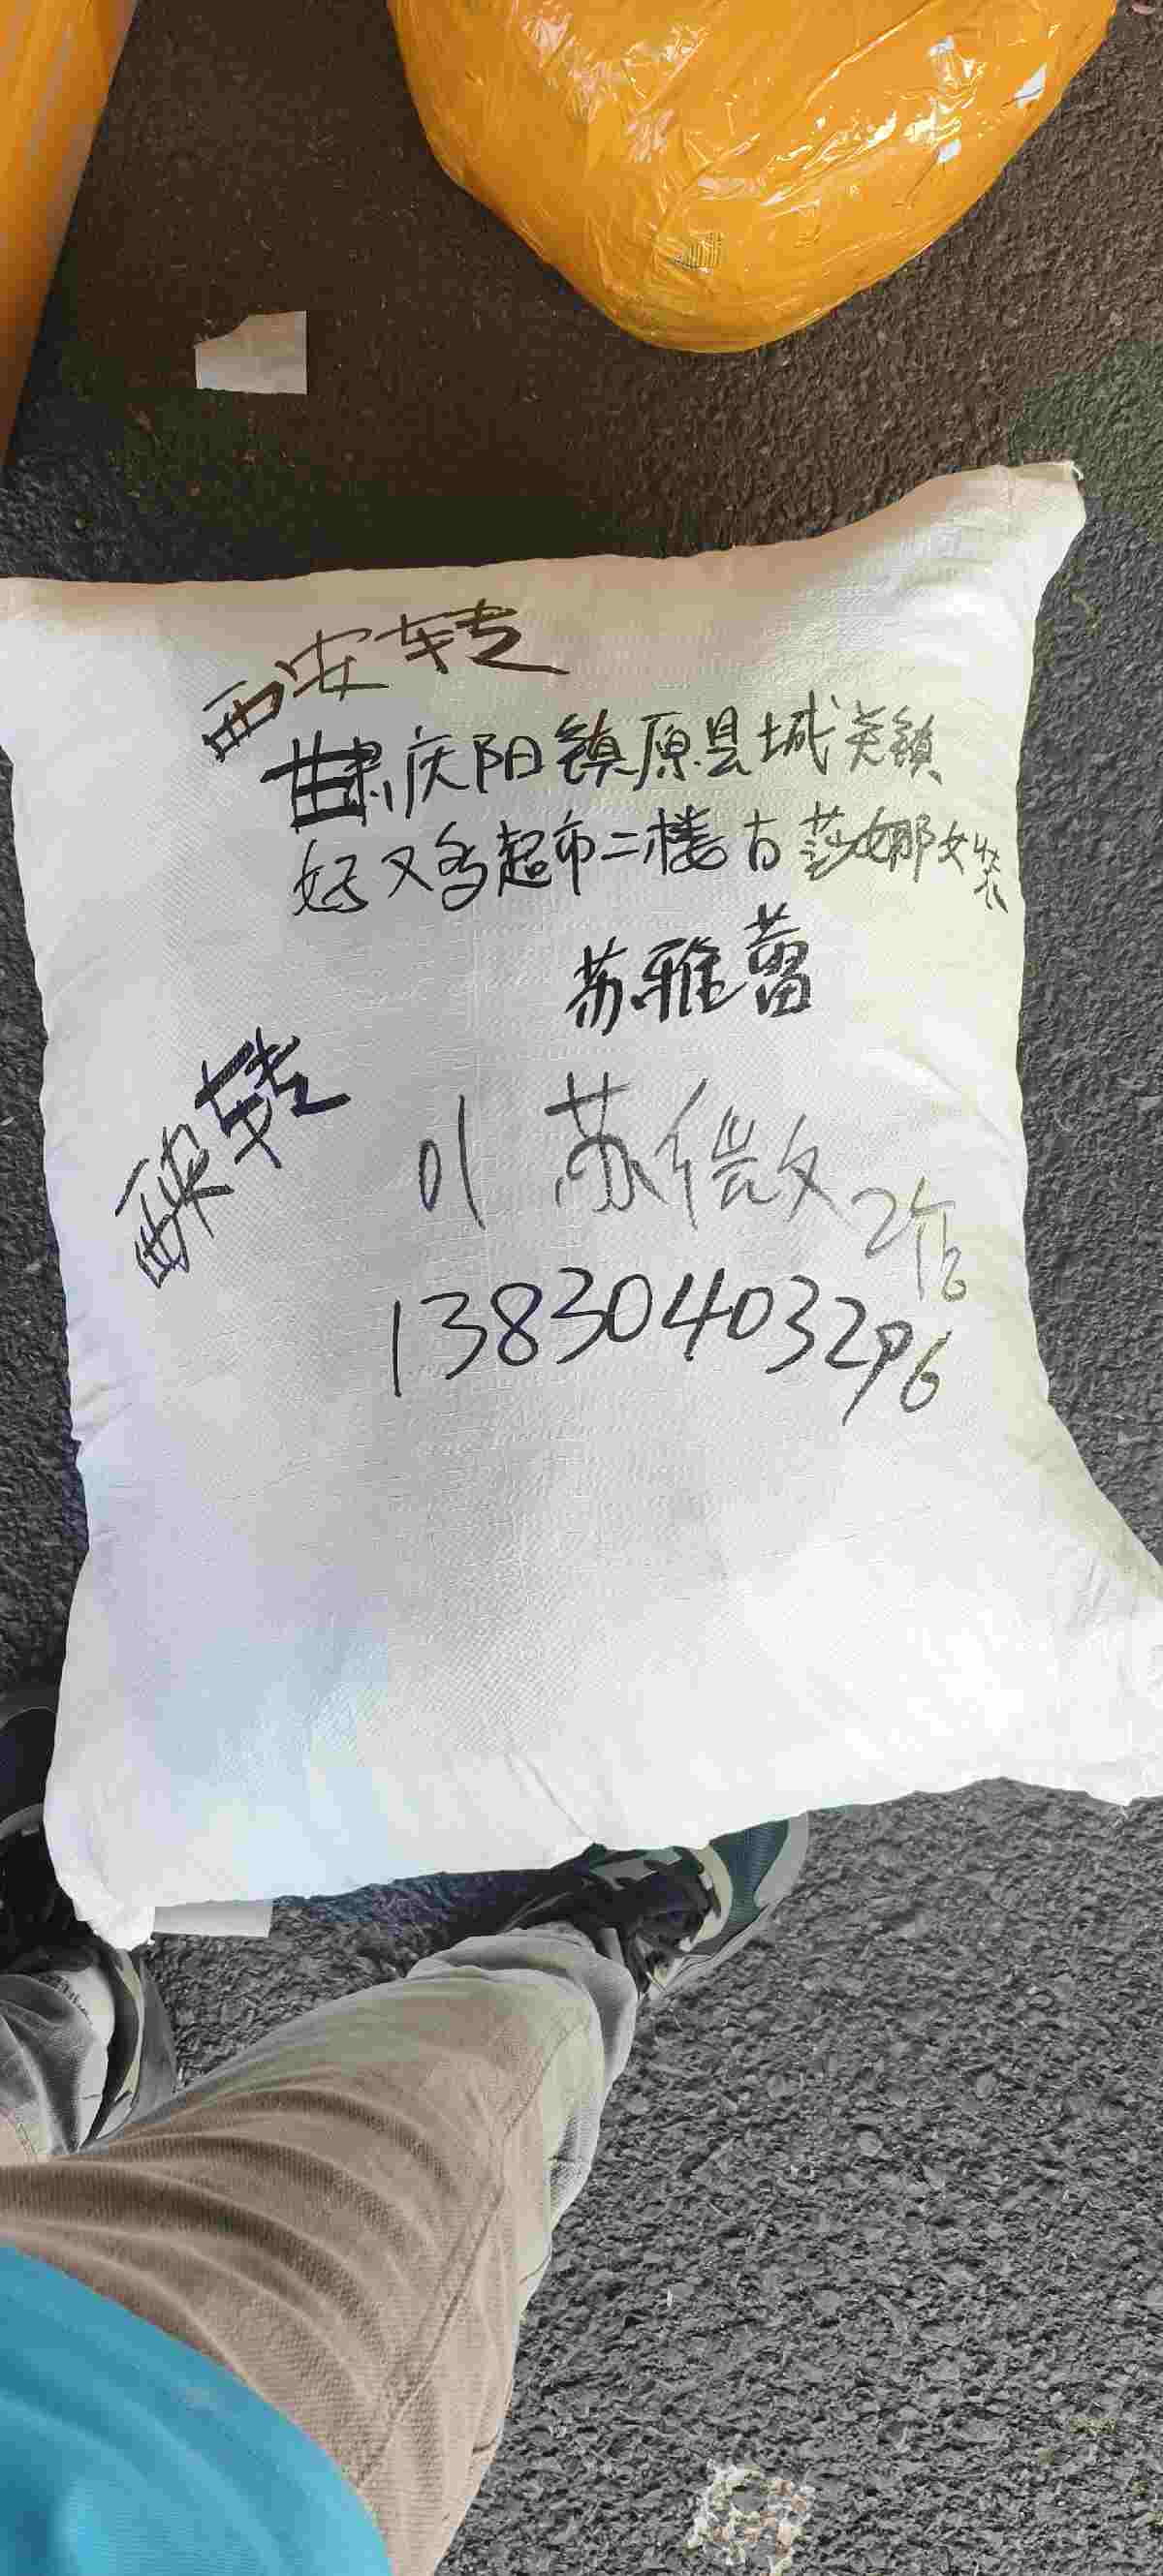 西安转
甘肃庆阳镇原县城关镇
好又多超市二楼古莎娜女装
苏雅蕾
西安转
01 苏微文
2包
13830403296